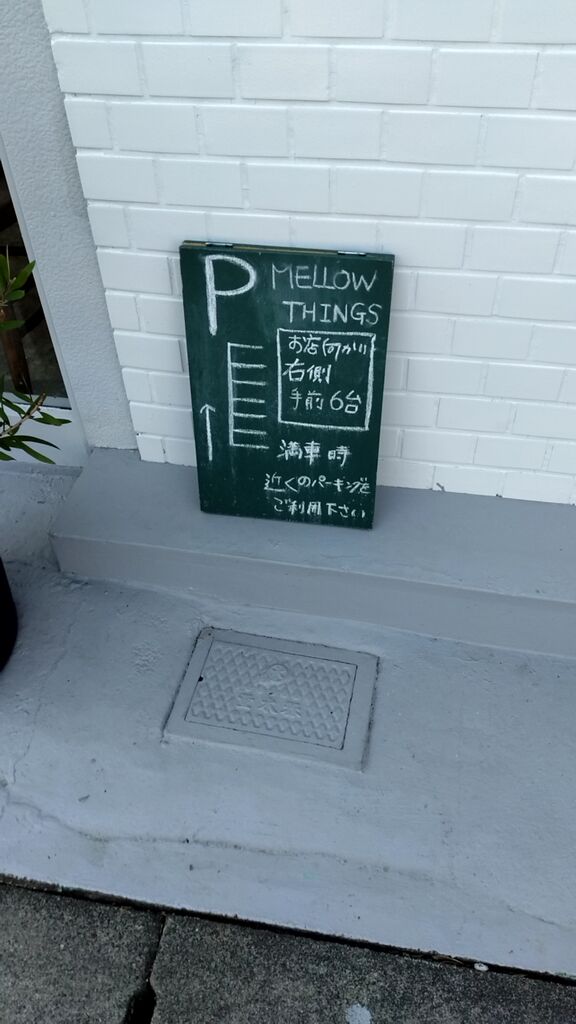 P MELLOW
THINGS
お店向かい
右側
手前6台
満車時
近くのパーキングを
ご利用下さい